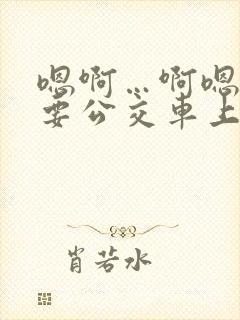 嗯啊…啊嗯
要公交车上
肖若水